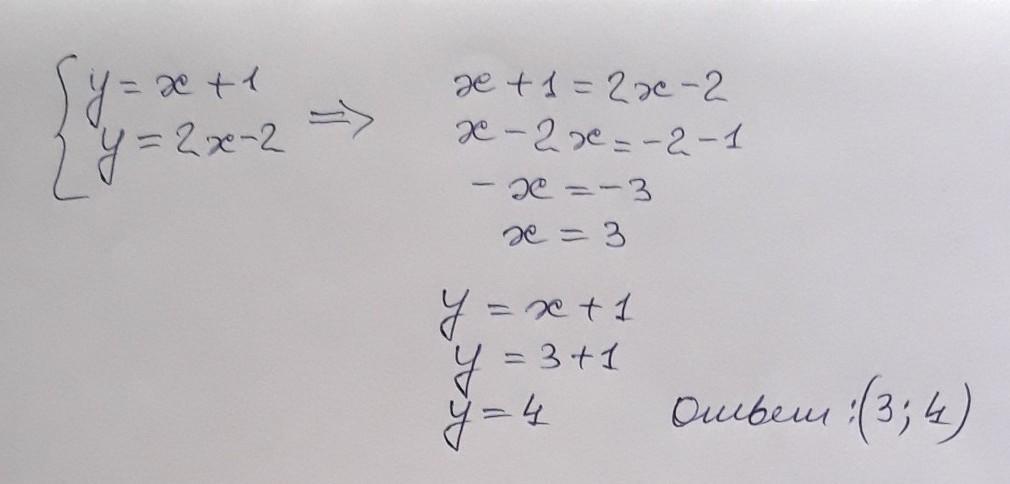 { y = x + 1
y = 2x - 2 ⇒
x + 1 = 2x - 2
x - 2x = -2 - 1
- x = -3
x = 3
y = x + 1
y = 3 + 1
y = 4
Ответ: (3; 4)